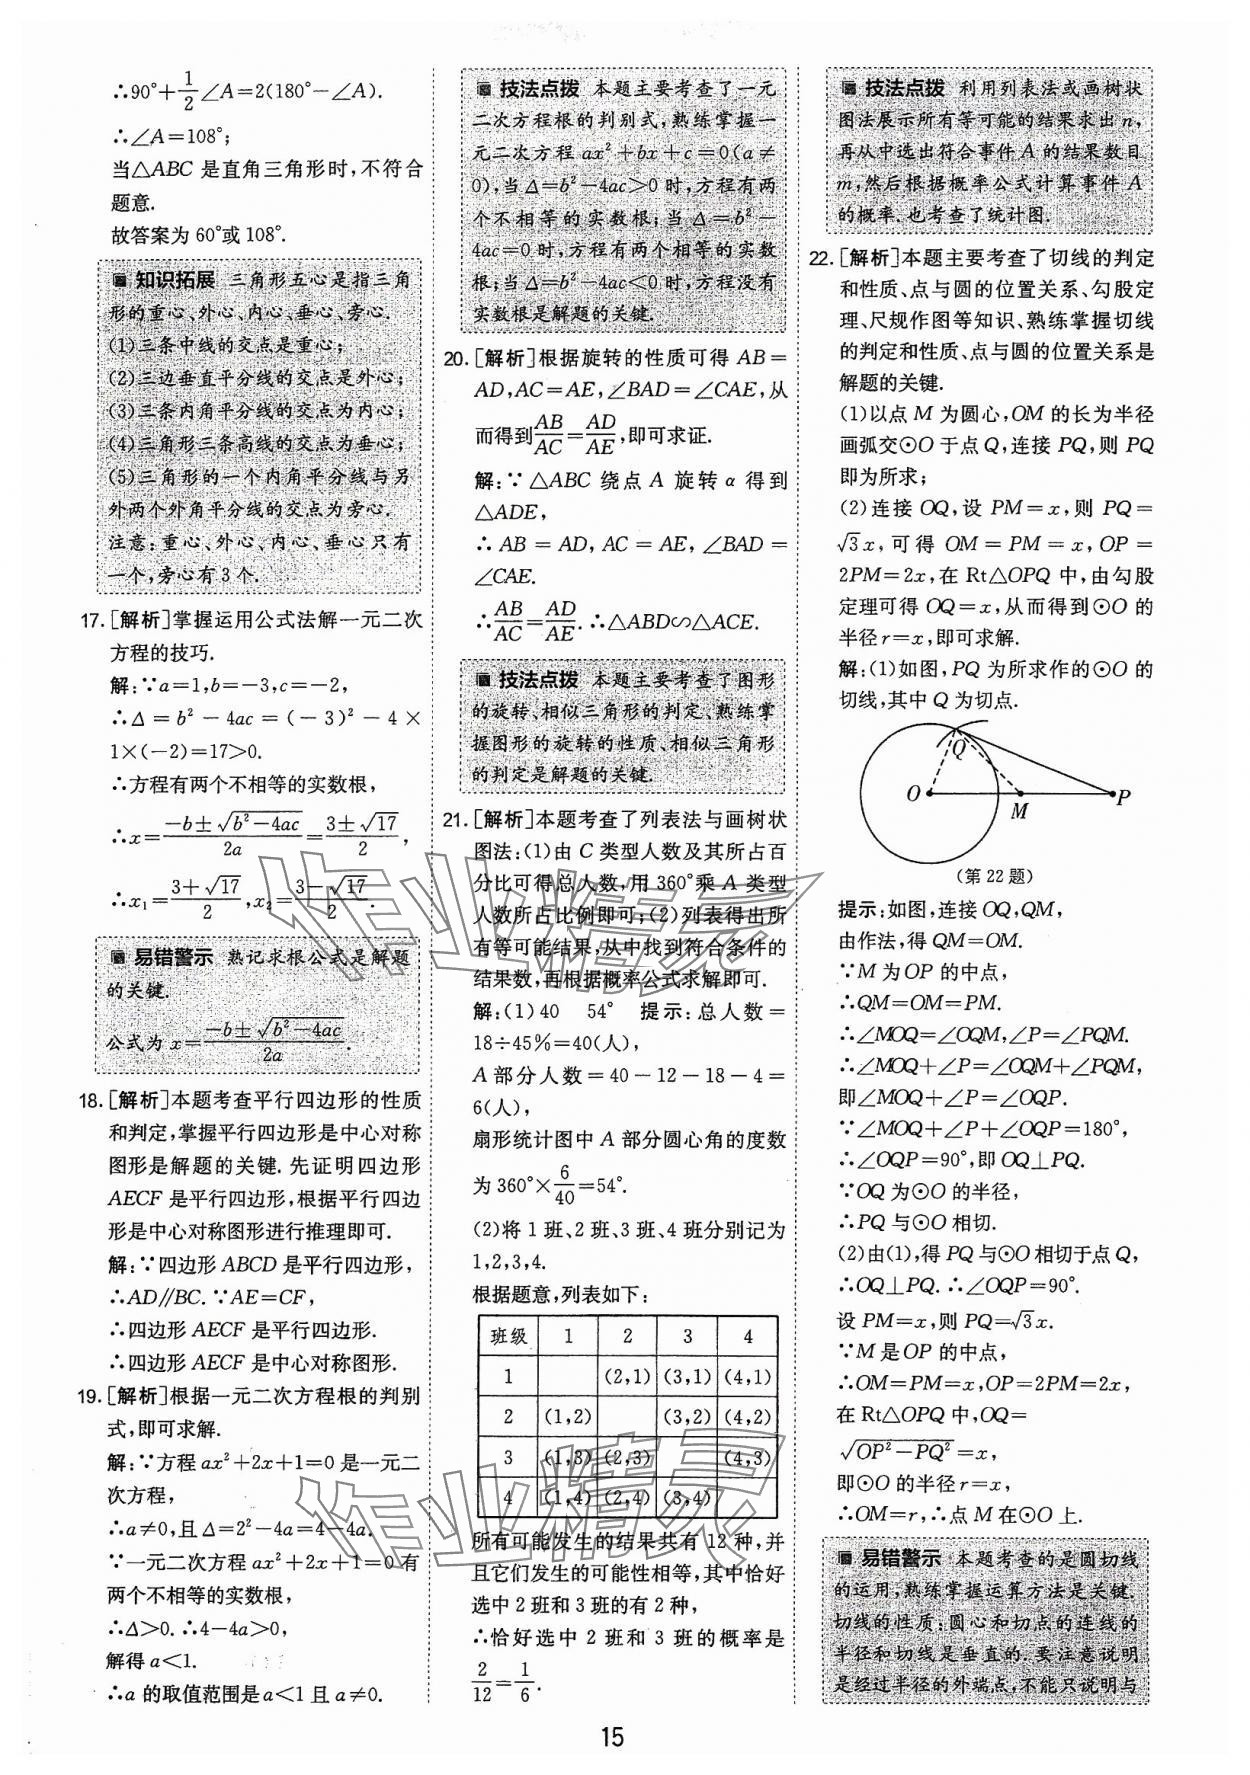 ∴90°+1/2∠A=2(180°-∠A).
∴∠A=108°;
当△ABC 是直角三角形时,不符合
题意.
故答案为 60°或 108°.
知识拓展 三角形五心是指三角
形的重心、外心、内心、垂心、旁心.
(1)三条中线的交点是重心;
(2)三边垂直平分线的交点是外心;
(3)三条内角平分线的交点为内心;
(4)三角形三条高线的交点为垂心;
(5)三角形的一个内角平分线与另
外两个外角平分线的交点为旁心.
注意:重心、外心、内心、垂心只有
一个,旁心有 3 个.
17. [解析]掌握运用公式法解一元二次
方程的技巧.
解:∵a=1,b=-3,c=-2,
∴Δ = b² - 4ac = (-3)² - 4 ×
1×(-2)=17>0.
∴方程有两个不相等的实数根,
∴x=(-b±√(b²-4ac))/2a=(3±√17)/2,
∴x₁=(3+√17)/2,x₂=(3-√17)/2.
易错警示 熟记求根公式是解题
的关键.
公式为 x=(-b±√(b²-4ac))/2a.
18. [解析]本题考查平行四边形的性质
和判定,掌握平行四边形是中心对称
图形是解题的关键. 先证明四边形
AECF 是平行四边形,根据平行四边
形是中心对称图形进行推理即可.
解:∵四边形 ABCD 是平行四边形,
∴AD∥BC.∵AE=CF,
∴四边形 AECF 是平行四边形.
∴四边形 AECF 是中心对称图形.
19. [解析]根据一元二次方程根的判别
式,即可求解.
解:∵方程 ax²+2x+1=0 是一元二
次方程,
∴a≠0,且 Δ=2²-4a=4-4a.
∵一元二次方程 ax²+2x+1=0 有
两个不相等的实数根,
∴Δ>0.∴4-4a>0,
解得 a<1.
∴a 的取值范围是 a<1 且 a≠0.
技法点拨 本题主要考查了一元
二次方程根的判别式,熟练掌握一
元二次方程 ax²+bx+c=0(a≠
0),当 Δ=b²-4ac>0 时,方程有两
个不相等的实数根;当 Δ=b²-
4ac=0 时,方程有两个相等的实数
根;当 Δ=b²-4ac<0 时,方程没有
实数根是解题的关键.
20. [解析]根据旋转的性质可得 AB=
AD,AC=AE,∠BAD=∠CAE,从
而得到AB/AC=AD/AE,即可求证.
解:∵△ABC 绕点 A 旋转 α 得到
△ADE,
∴ AB = AD, AC = AE, ∠BAD =
∠CAE.
∴AB/AC=AD/AE.∴△ABD∽△ACE.
技法点拨 本题主要考查了图形
的旋转、相似三角形的判定、熟练掌
握图形的旋转的性质、相似三角形
的判定是解题的关键.
21. [解析]本题考查了列表法与画树状
图法:(1)由 C 类型人数及其所占百
分比可得总人数,用 360°乘 A 类型
人数所占比例即可;(2)列表得出所
有等可能结果,从中找到符合条件的
结果数,再根据概率公式求解即可.
解:(1)40 54° 提示:总人数=
18÷45%=40(人),
A 部分人数=40-12-18-4=
6(人),
扇形统计图中 A 部分圆心角的度数
为 360°×6/40=54°.
(2)将 1 班、2 班、3 班、4 班分别记为
1,2,3,4.
根据题意,列表如下:
班级 1 2 3 4
1 (2,1) (3,1) (4,1)
2 (1,2) (3,2) (4,2)
3 (1,3) (2,3) (4,3)
4 (1,4) (2,4) (3,4)
所有可能发生的结果共有 12 种,并
且它们发生的可能性相等,其中恰好
选中 2 班和 3 班的有 2 种,
∴恰好选中 2 班和 3 班的概率是
2/12=1/6.
技法点拨 利用列表法或画树状
图法展示所有等可能的结果求出 n,
再从中选出符合事件 A 的结果数目
m,然后根据概率公式计算事件 A
的概率.也考查了统计图.
22. [解析]本题主要考查了切线的判定
和性质、点与圆的位置关系、勾股定
理、尺规作图等知识、熟练掌握切线
的判定和性质、点与圆的位置关系是
解题的关键.
(1)以点 M 为圆心,OM 的长为半径
画弧交⊙O 于点 Q,连接 PQ,则 PQ
即为所求;
(2)连接 OQ,设 PM=x,则 PQ=
√3x,可得 OM=PM=x,OP=
2PM=2x,在 Rt△OPQ 中,由勾股
定理可得 OQ=x,从而得到⊙O 的
半径 r=x,即可求解.
解:(1)如图,PQ 为所求作的⊙O 的
切线,其中 Q 为切点.
Q
O
M
P
(第 22 题)
提示:如图,连接 OQ,QM,
由作法,得 QM=OM.
∵M 为 OP 的中点,
∴QM=OM=PM.
∴∠MOQ=∠OQM,∠P=∠PQM.
∴∠MOQ+∠P=∠OQM+∠PQM,
即∠MOQ+∠P=∠OQP.
∵∠MOQ+∠P+∠OQP=180°,
∴∠OQP=90°,即 OQ⊥PQ.
∵OQ 为⊙O 的半径,
∴PQ 与⊙O 相切.
(2)由(1),得 PQ 与⊙O 相切于点 Q,
∴OQ⊥PQ.∴∠OQP=90°.
设 PM=x,则 PQ=√3x.
∵M 是 OP 的中点,
∴OM=PM=x,OP=2PM=2x,
在 Rt△OPQ 中,OQ=
√(OP²-PQ²)=x,
即⊙O 的半径 r=x,
∴OM=r,∴点 M 在⊙O 上.
易错警示 本题考查的是圆切线
的运用,熟练掌握运算方法是关键.
切线的性质:圆心和切点的连线的
半径和切线是垂直的.要注意说明
是经过半径的外端点,不能只说明与
15
作业精灵
作业精灵